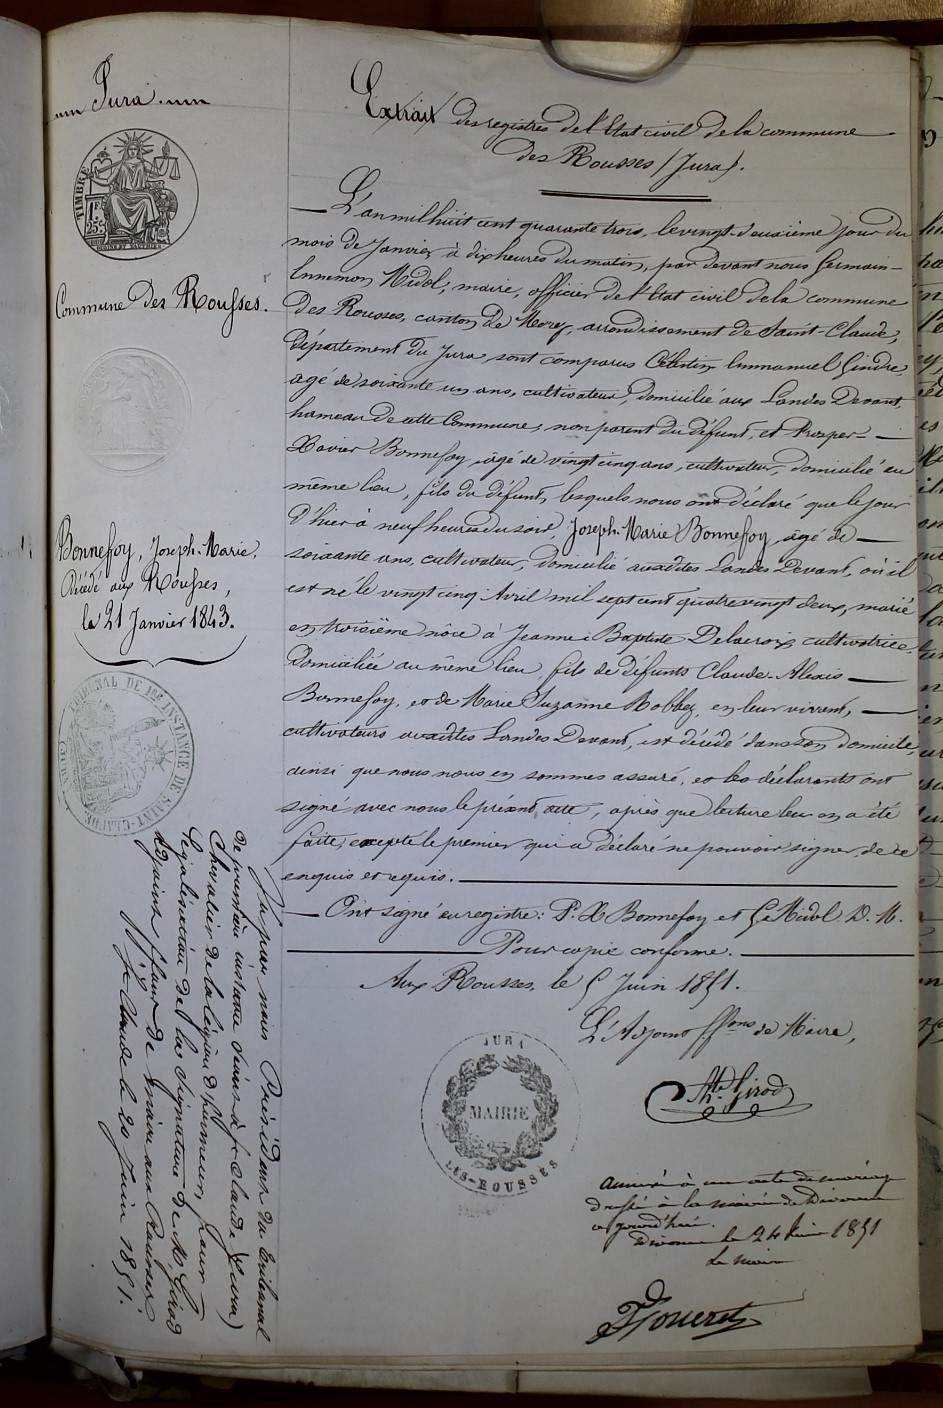 Jura.
TIMBRE
1F.
25c.
Commune Des Rousses.
Bonnefoy, Joseph-Marie,
Décédé aux Rousses,
le 21 Janvier 1843.
TRIBUNAL DE 1ère INSTANCE DE SAINT-CLAUDE (JURA)
Vu par nous Président du Tribunal
de première instance séant à St Claude (Jura)
Chevalier de la légion d'honneur, pour
légalisation de la signature de Mr Girod
adjoint ffaur de maire aux Rousses
St Claude le 20 Juin 1851.
Extrait des registres de l'Etat civil de la commune
des Rousses (Jura).
L'an mil huit cent quarante trois, le vingt-deuxième jour du
mois de Janvier à dix heures du matin, par devant nous Germain-
Emmanuel Nidol, maire, officier de l'Etat civil de la commune
des Rousses, canton de Morez, arrondissement de Saint-Claude,
Département du Jura, sont comparus Célestin Emmanuel Gindre,
agé de soixante un ans, cultivateur, domicilié aux Landes Devant,
hameau de cette Commune, non parent du défunt, et Prosper-
Xavier Bonnefoy, âgé de vingt cinq ans, cultivateur, domicilié au
même lieu, fils du défunt, lesquels nous ont déclaré que le jour
d'hier à neuf heures du soir, Joseph-Marie Bonnefoy, âgé de
soixante ans, cultivateur, domicilié auxdites Landes Devant, où il
est né le vingt cinq Avril mil sept cent quatre vingt deux, marié
en troisième nôce à Jeanne-Baptiste Delacroix, cultivatrice,
domiciliée au même lieu, fils de défunts Claude-Alexis
Bonnefoy, et de Marie Suzanne Robbez, en leur vivant,
cultivateurs auxdites Landes Devant, est décédé dans son domicile,
ainsi que nous nous en sommes assuré, et les déclarants ont
signé avec nous le présent acte, après que lecture leur en a été
faite, excepté le premier qui a déclaré ne pouvoir signer, de ce
enquis et requis.
Ont signé au registre: P. X Bonnefoy et G. Nidol D. M.
Pour copie conforme.
Aux Rousses, le 5 Juin 1851.
L'Adjoint ffons de Maire,
Girod
JURA
MAIRIE
LES-ROUSSES
annexé à un acte de mariage
dressé à la mairie de Divonne
aujourd'hui.
Divonne le 24 Juin 1851
Le maire